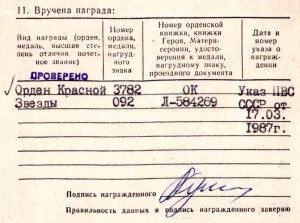 11. Вручена награда:
Вид награды (орден, медаль, высшая степень отличия, почетное звание)
Номер ордена, медали, нагрудного знака
Номер орденской книжки, книжки Героя, Материгероини, удостоверения к медали, нагрудному знаку, проездного документа
Дата и номер указа о награждении
ПРОВЕРЕНО
Орден Красной 3782 ОК Указ ПВС
Звезды 092 Л-584269 СССР от
17.03.
1987г.
Подпись награжденного
Правильность данных и подпись награжденного заверяю